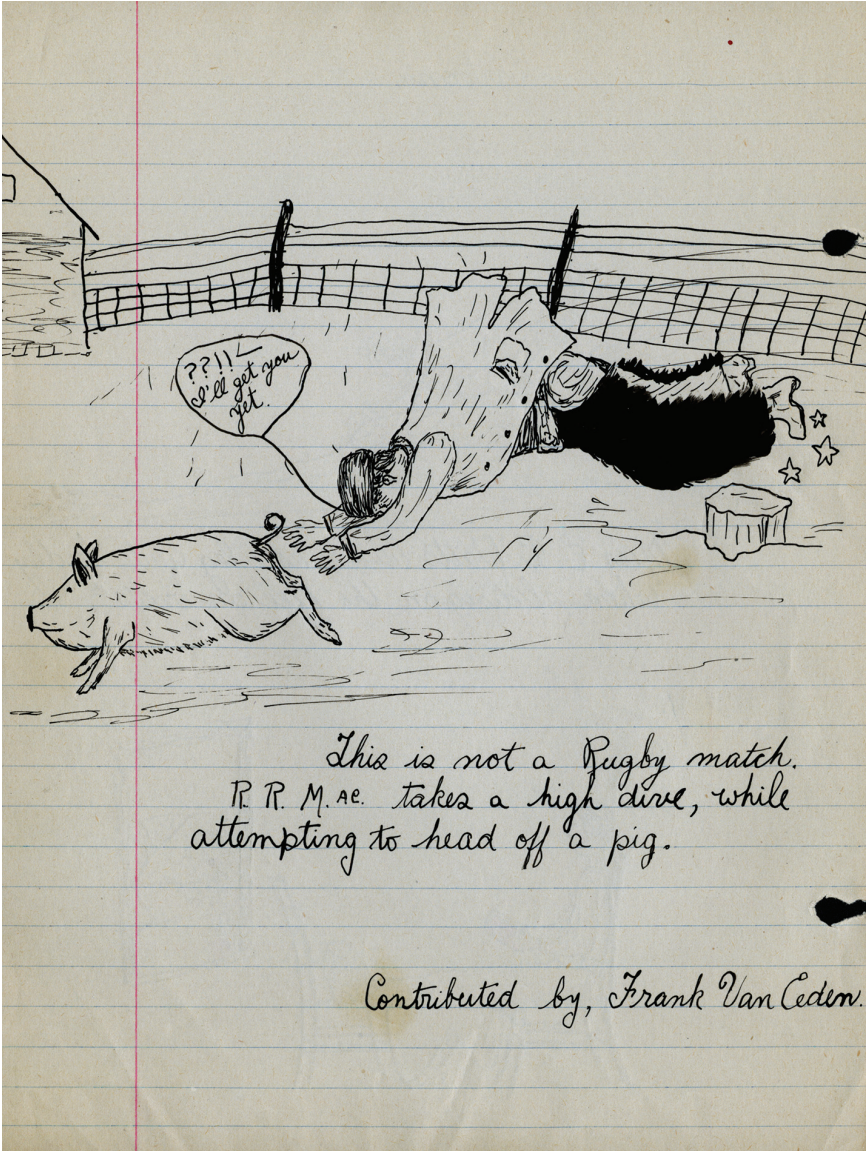 ??!!
I'll get you
yet.
This is not a Rugby match.
R. R. M. AC. takes a high dive, while
attempting to head off a pig.
Contributed by, Frank Van Eeden.